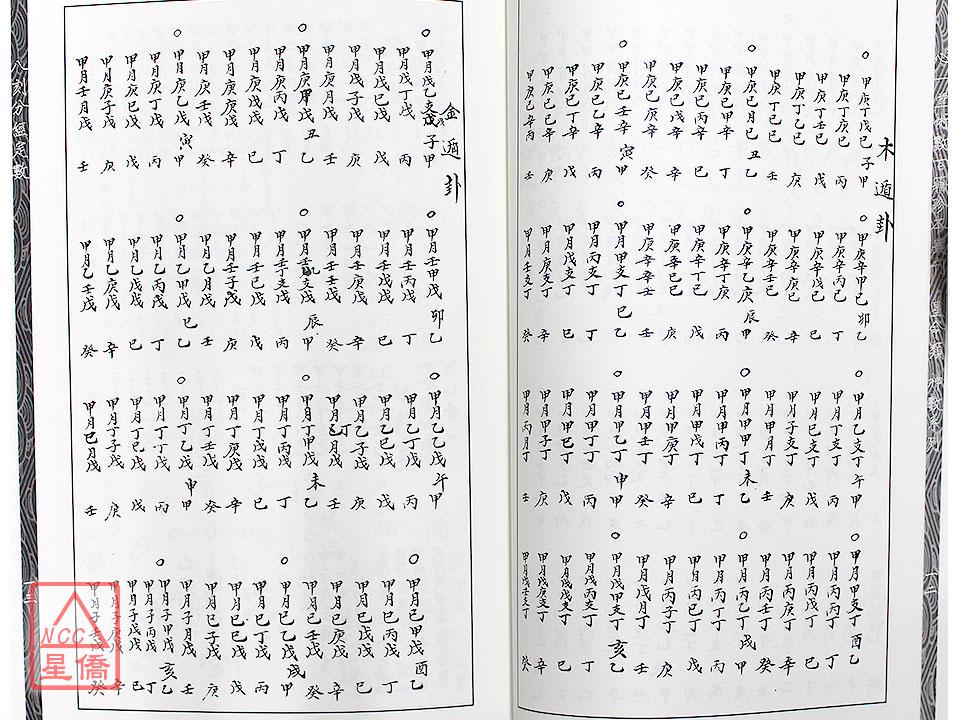 木遁卦
甲庚丁戊巳 子甲
甲庚丁庚巳 丙
甲庚丁壬巳 戊
甲庚丁乙巳 庚
甲庚丁巳巳 壬
甲庚巳月巳 丑乙
甲庚巳甲辛 丁
甲庚巳丙辛 巳
甲庚巳戊辛 辛
甲庚巳庚辛 癸
甲庚巳壬辛 寅甲
甲庚巳乙辛 丙
甲庚巳丁辛 戊
甲庚巳巳辛 庚
甲庚巳辛丙 壬
甲庚辛甲巳 卯乙
甲庚辛丙巳 丁
甲庚辛戊巳 巳
甲庚辛庚巳 辛
甲庚辛壬巳 癸
甲庚辛乙庚 辰甲
甲庚辛丁庚 丙
甲庚辛丁巳 戊
甲庚辛巳巳 庚
甲庚辛辛壬 壬
甲月甲支丁 巳乙
甲月丙支丁 丁
甲月戊支丁 巳
甲月庚支丁 辛
甲月壬支丁 癸
甲月乙支丁 午甲
甲月丁支丁 丙
甲月巳支丁 戊
甲月子支丁 庚
甲月甲月丁 壬
甲月甲甲丁 未乙
甲月甲丙丁 丁
甲月甲戊丁 巳
甲月甲庚丁 辛
甲月甲壬丁 癸
甲月甲乙丁 申甲
甲月甲丁丁 丙
甲月甲巳丁 戊
甲月甲子丁 庚
甲月丙月丁 壬
甲月丙甲支丁 酉乙
甲月丙丙丁 丁
甲月丙戊丁 巳
甲月丙庚丁 辛
甲月丙壬丁 癸
甲月丙乙丁 戌甲
甲月丙丁丁 丙
甲月丙巳丁 戊
甲月丙子丁 庚
甲月戊月丁 壬
甲月戊甲支丁 亥乙
甲月戊丙支丁 丁
甲月戊戊支丁 巳
甲月戊庚支丁 辛
甲月戊壬支丁 癸
金遁卦
甲月戊乙支戊 子甲
甲月戊丁戊 丙
甲月戊巳戊 戊
甲月戊子戊 庚
甲月庚月戊 壬
甲月庚甲戊 丑乙
甲月庚丙戊 丁
甲月庚戊戊 巳
甲月庚庚戊 辛
甲月庚壬戊 癸
甲月庚乙戊 寅甲
甲月庚丁戊 丙
甲月庚巳戊 戊
甲月庚子戊 庚
甲月壬月戊 壬
甲月壬甲戊 卯乙
甲月壬丙戊 丁
甲月壬戊戊 巳
甲月壬庚戊 辛
甲月壬壬戊 癸
甲月壬乙支戊 辰甲
甲月壬丁支戊 丙
甲月壬巳戊 戊
甲月壬子戊 庚
甲月乙月戊 壬
甲月乙甲戊 巳乙
甲月乙丙戊 丁
甲月乙戊戊 巳
甲月乙庚戊 辛
甲月乙壬戊 癸
甲月乙乙戊 午甲
甲月乙丁戊 丙
甲月乙巳戊 戊
甲月乙子戊 庚
甲月丁月戊 壬
甲月丁甲戊 未乙
甲月丁丙戊 丁
甲月丁戊戊 巳
甲月丁庚戊 辛
甲月丁壬戊 癸
甲月丁乙戊 申甲
甲月丁丁戊 丙
甲月丁巳戊 戊
甲月丁子戊 庚
甲月巳月戊 壬
甲月巳甲戊 酉乙
甲月巳丙戊 丁
甲月巳戊戊 巳
甲月巳庚戊 辛
甲月巳壬戊 癸
甲月巳乙戊 戌甲
甲月巳丁戊 丙
甲月巳巳戊 戊
甲月巳子戊 庚
甲月子月戊 壬
甲月子甲戊 亥乙
甲月子丙戊 丁
甲月子戊戊 巳
甲月子庚戊 辛
甲月子壬戊 癸
八刻分經定數
NCC
星僑